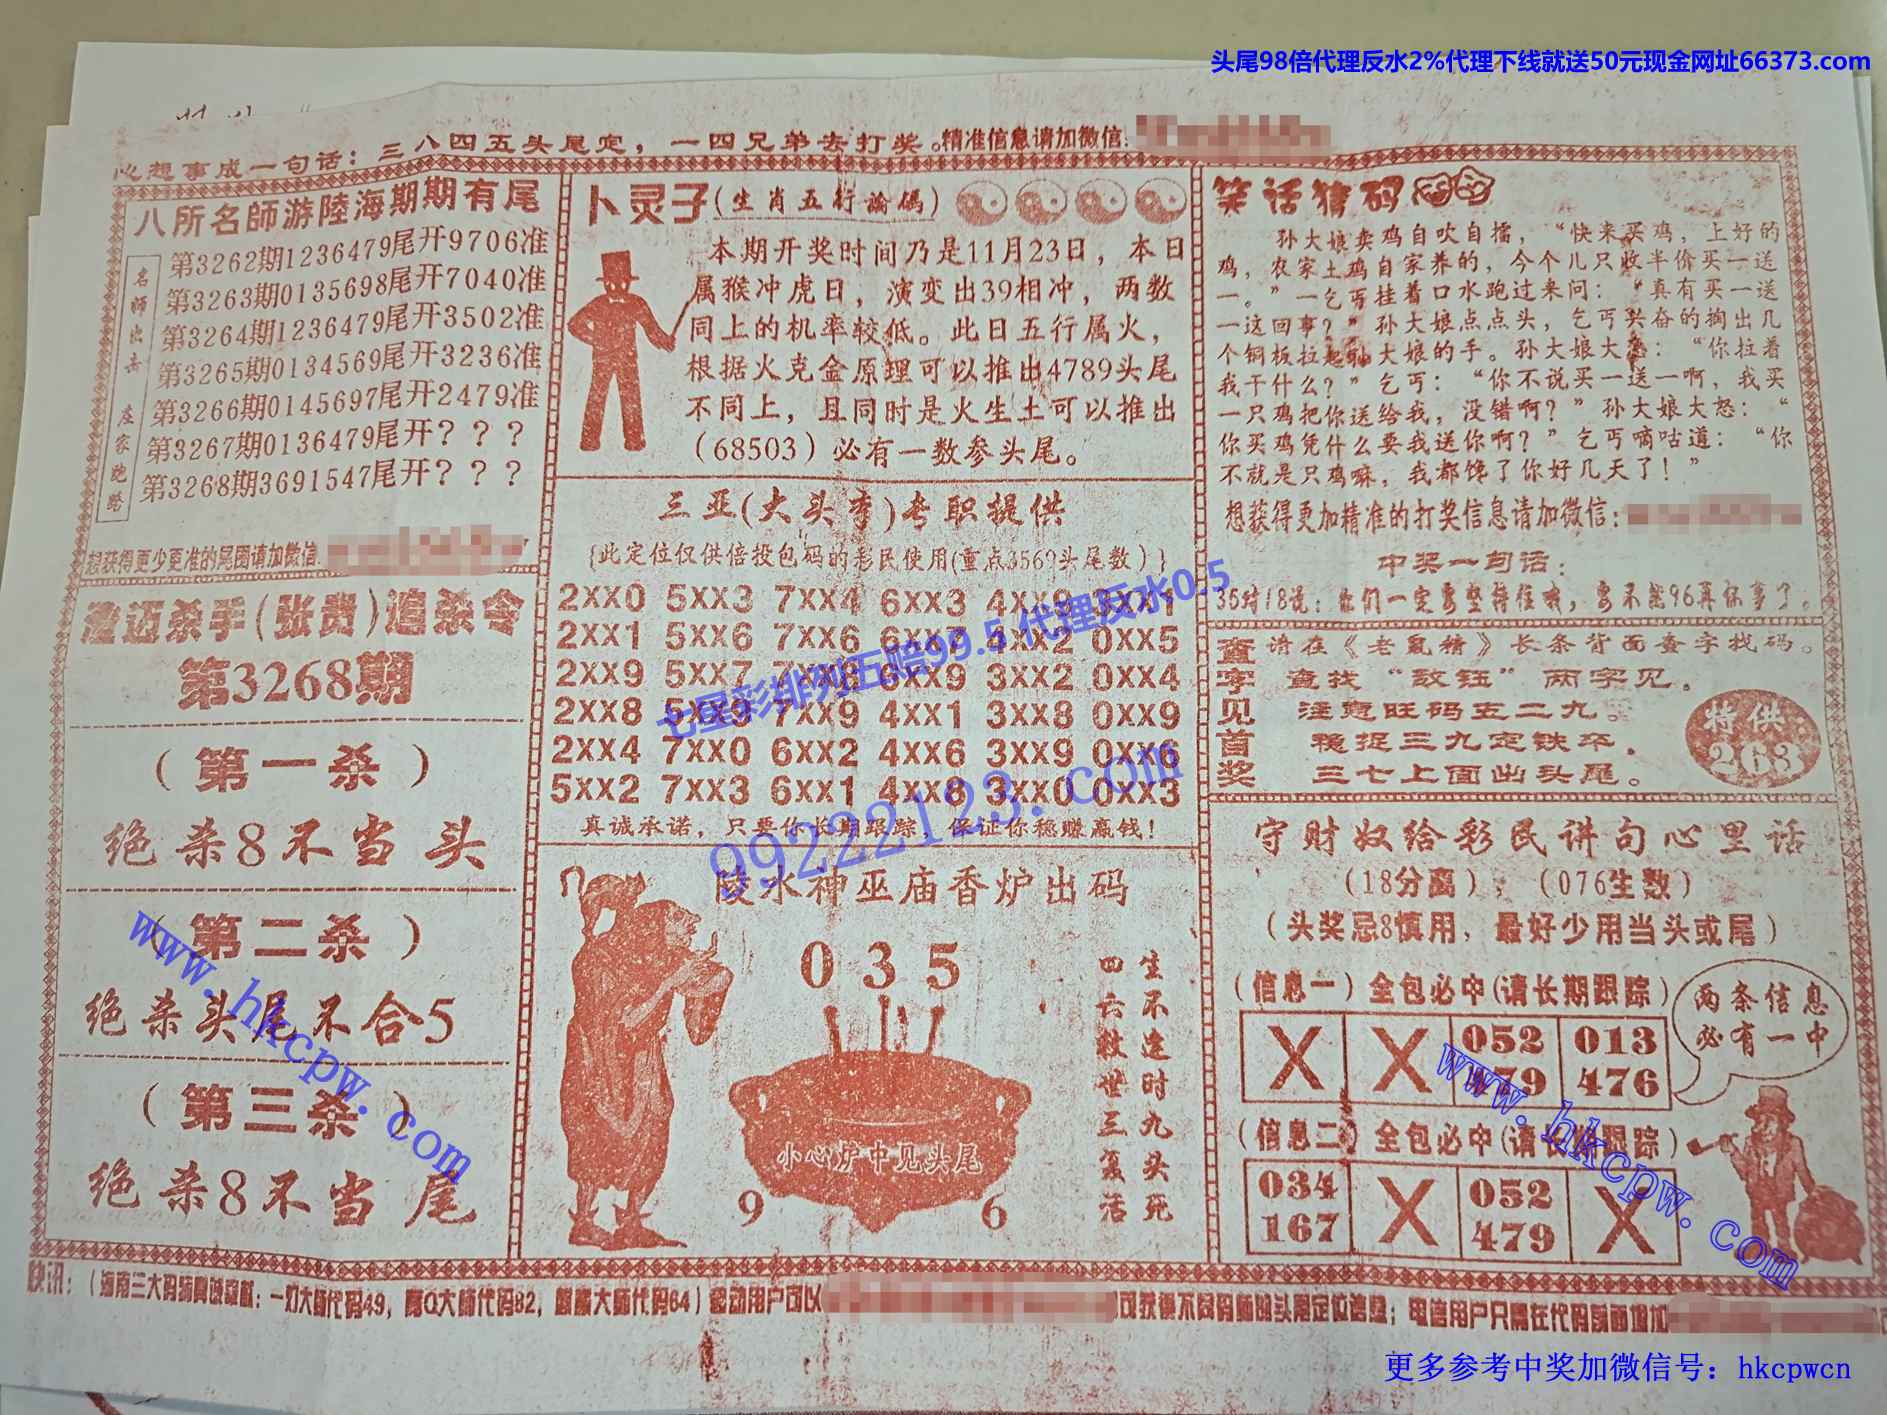 头尾98倍代理反水2%代理下线就送50元现金网址66373.com
心想事成一句话：三八四五头尾定，一四兄弟去打奖。精准信息请加微信:
八所名師游陸海期期有尾
名师出击 庄家跑路
第3262期1236479尾开9706准
第3263期0135698尾开7040准
第3264期1236479尾开3502准
第3265期0134569尾开3236准
第3266期0145697尾开2479准
第3267期0136479尾开？？？
第3268期3691547尾开？？？
想获得更少更准的尾图请加微信:
澄迈杀手(张贵)追杀令
第3268期
（第一杀）
绝杀8不当头
（第二杀）
绝杀头尾不合5
（第三杀）
绝杀8不当尾
卜灵子(生肖五行論碼)
本期开奖时间乃是11月23日，本日
属猴冲虎日，演变出39相冲，两数
同上的机率较低。此日五行属火，
根据火克金原理可以推出4789头尾
不同上，且同时是火生土可以推出
（68503）必有一数参头尾。
三亚(大头李)专职提供
{此定位仅供倍投包码的彩民使用(重点3569头尾数)}
2XX0 5XX3 7XX4 6XX3 4XX9 3XX1
2XX1 5XX6 7XX6 6XX7 4XX2 0XX5
2XX9 5XX7 7XX8 6XX9 3XX2 0XX4
2XX8 5XX9 7XX9 4XX1 3XX8 0XX9
2XX4 7XX0 6XX2 4XX6 3XX9 0XX6
5XX2 7XX3 6XX1 4XX8 3XX0 0XX3
真诚承诺，只要你长期跟踪，保证你稳赚赢钱！
七星彩排列五赔99.5 代理反水0.5
99222123.com
陵水神巫庙香炉出码
035
生不逢时九头死
四六救世三复活
小心炉中见头尾
9 6
笑话猜码
孙大娘卖鸡自吹自擂，“快来买鸡，上好的
鸡，农家土鸡自家养的，今个儿只收半价买一送
一。”一乞丐挂着口水跑过来问：“真有买一送
一这回事？”孙大娘点点头，乞丐兴奋的掏出几
个铜板拉起孙大娘的手。孙大娘大怒：“你拉着
我干什么？”乞丐：“你不说买一送一啊，我买
一只鸡把你送给我，没错啊？”孙大娘大怒：“
你买鸡凭什么要我送你啊？”乞丐嘀咕道：“你
不就是只鸡嘛，我都馋了你好几天了！”
想获得更加精准的打奖信息请加微信:
中奖一句话：
35对18说：他们一定要坚持住哦，要不然96再你事了。
查字见首奖
请在《老鼠精》长条背面查字找码。
查找“致钰”两字见。
注意旺码五二九。
稳捉三九定铁卒。
三七上面出头尾。
特供:
263
守财奴给彩民讲句心里话
（18分离），（076生数）
（头奖忌8慎用，最好少用当头或尾）
（信息一）全包必中(请长期跟踪)
X X 052 013
479 476
两条信息
必有一中
（信息二）全包必中(请长期跟踪)
034 X 052 X
167 479
快讯：（海南三大码师真诚奉献：一灯大师代码49，阿Q大师代码82，麒麟大师代码64）移动用户可以
可获得不同码师的头尾定位信息；电信用户只需在代码前面增加
www.hkcpw.com
www.hkcpw.com
更多参考中奖加微信号：hkcpwcn